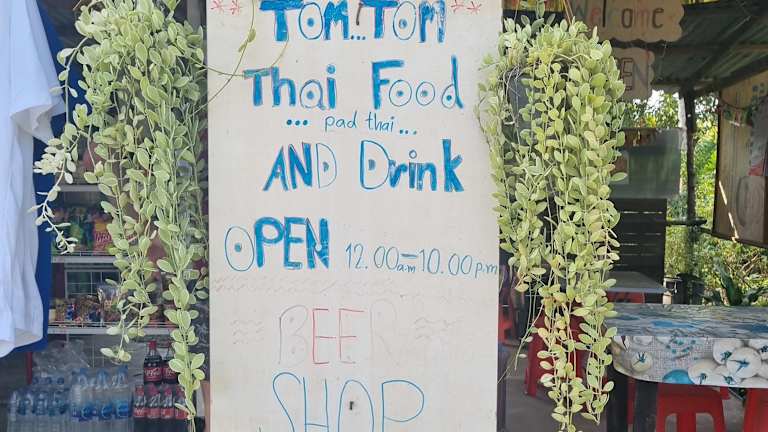 TOM...TOM
Thai Food
... pad thai ...
AND Drink
OPEN 12.00am-10.00pm
BEER
SHOP
Welcome